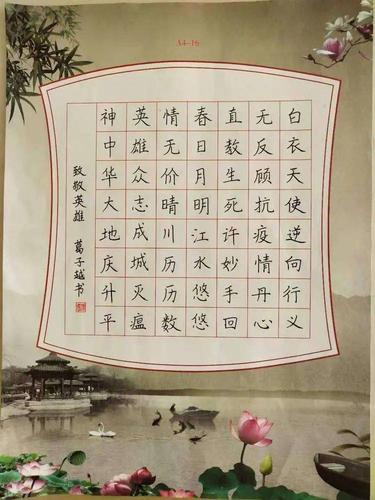 A4-16
白衣天使逆向行义
无反顾抗疫情丹心
直教生死许妙手回
春日月明江水悠悠
情无价晴川历历数
英雄众志成城灭瘟
神中华大地庆升平
致敬英雄 葛子越书